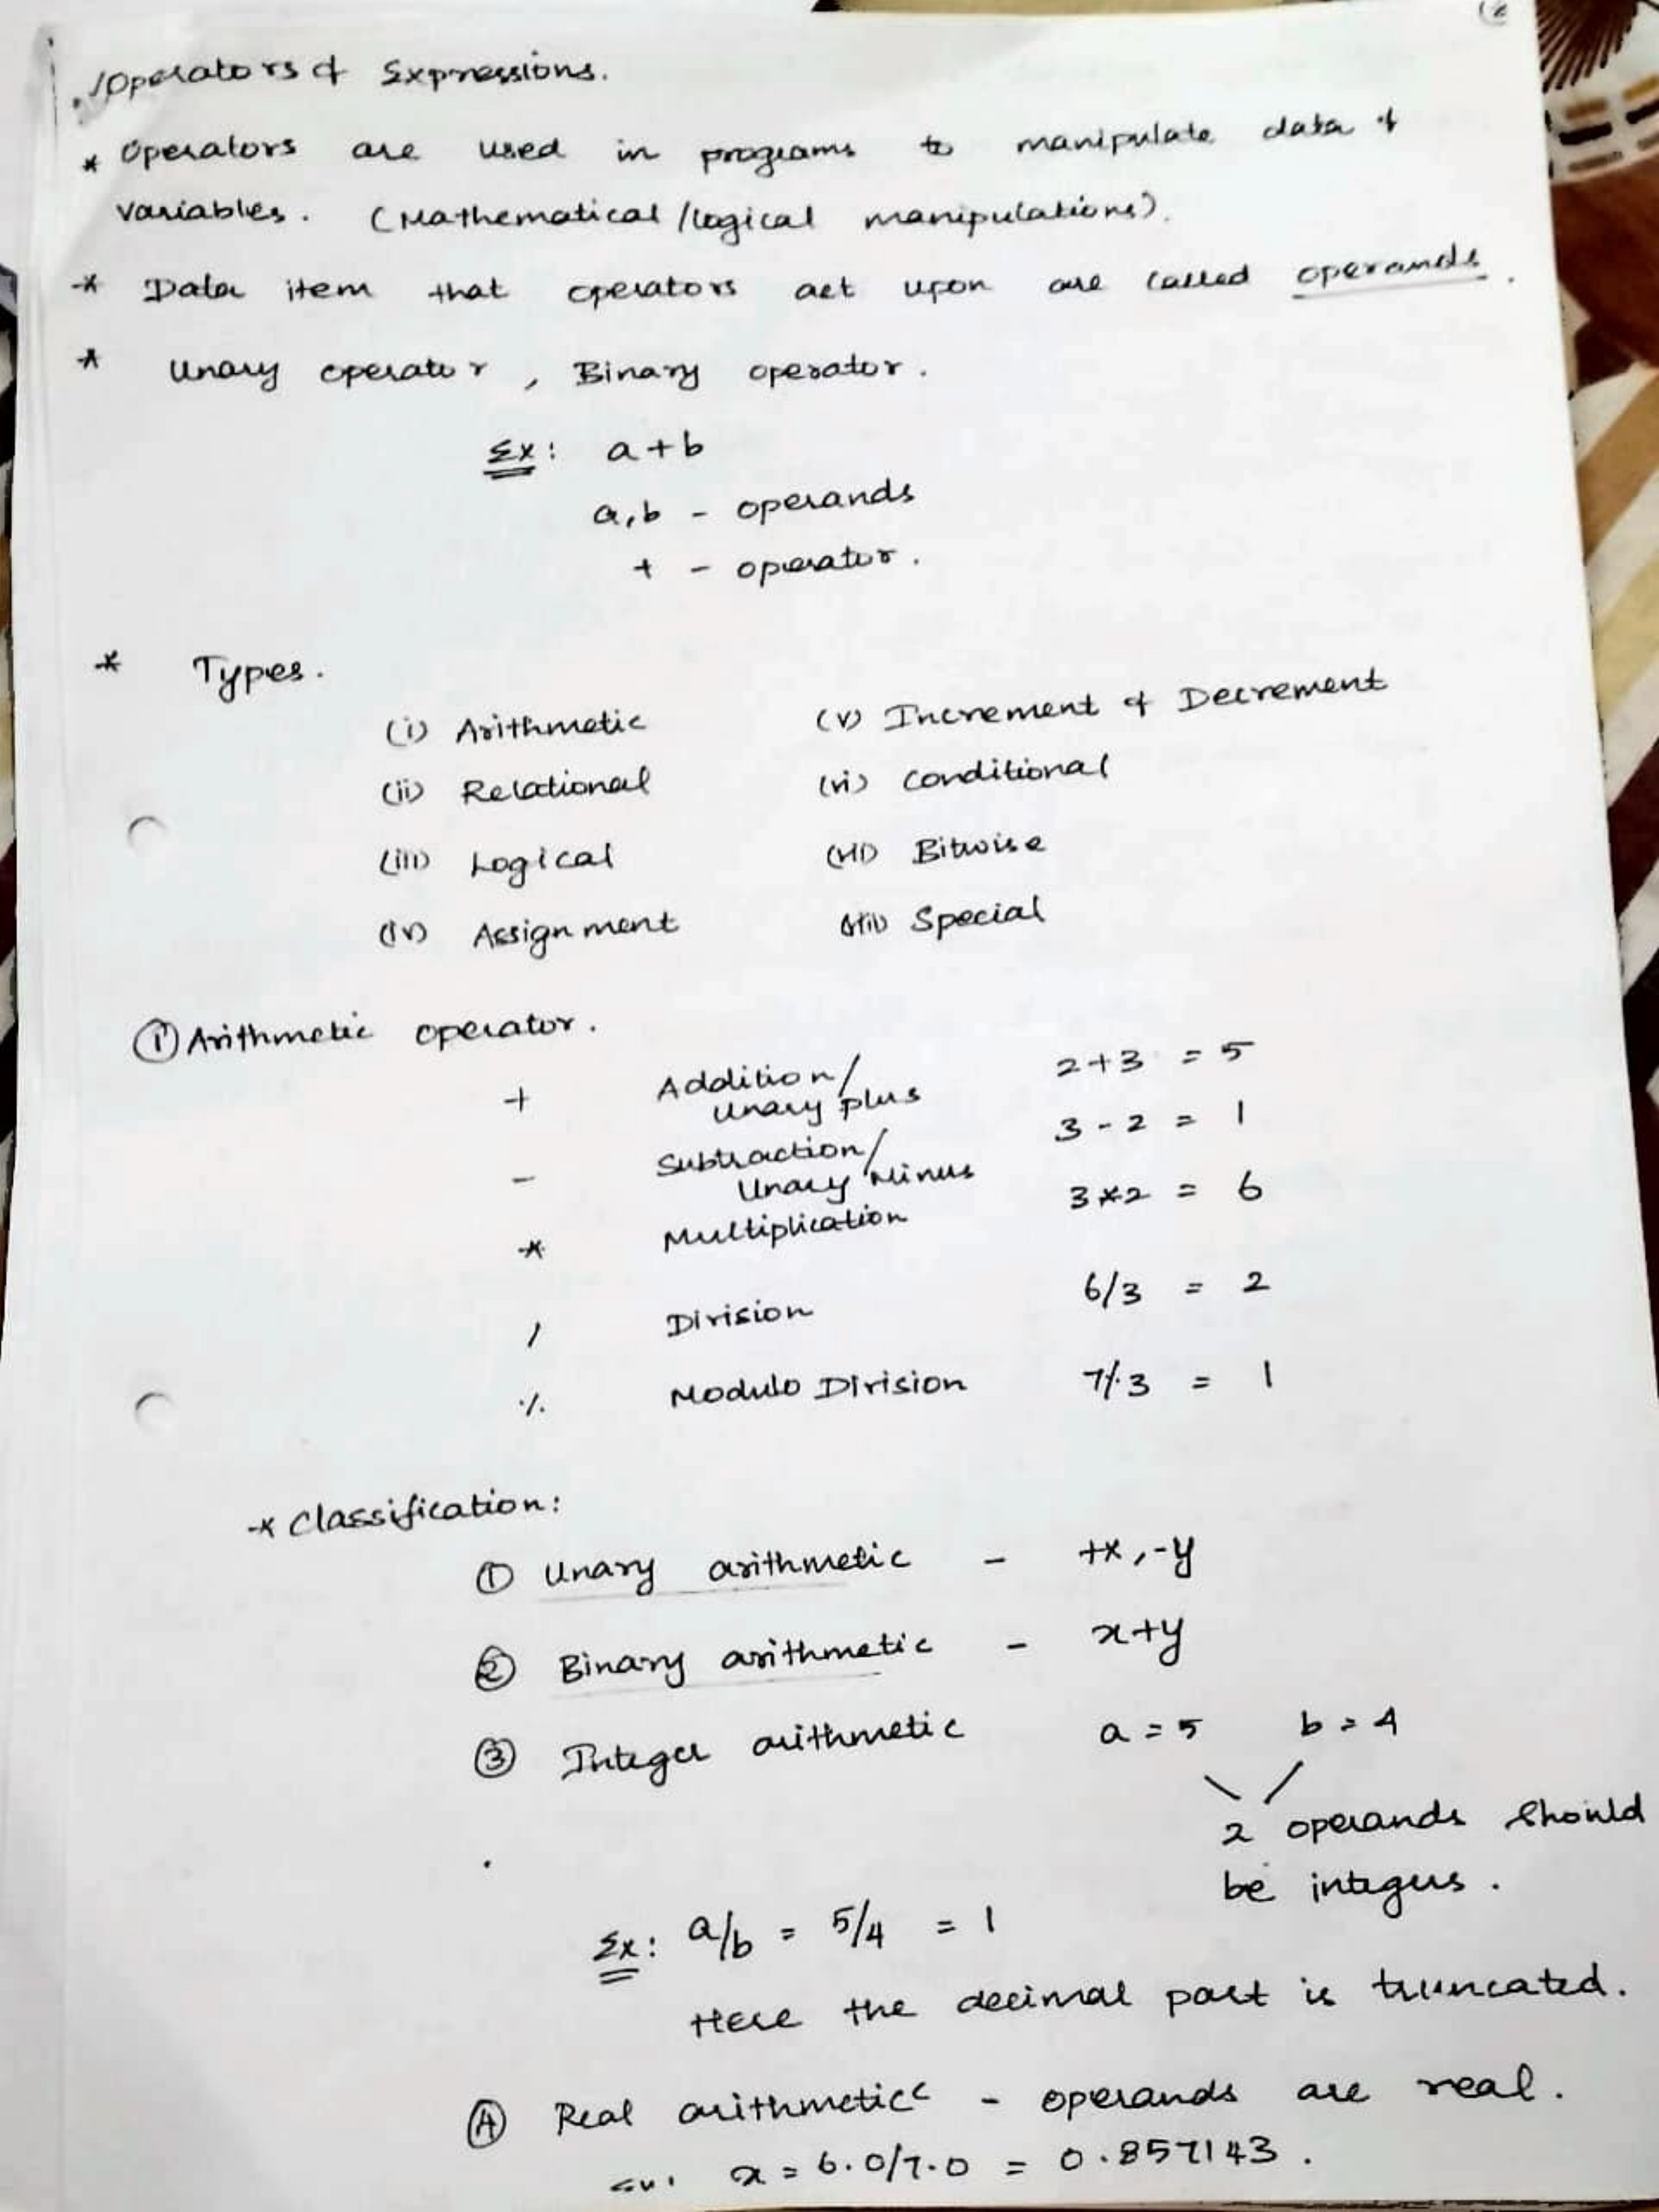 Operators & Expressions.
* Operators are used in programs to manipulate data &
variables. (Mathematical/logical manipulations).
* Data item that operators act upon are called operands.
* Unary operator, Binary operator.
Ex: a+b
a,b - operands
+ - operator.
* Types.
(i) Arithmetic (v) Increment & Decrement
(ii) Relational (vi) Conditional
(iii) Logical (vii) Bitwise
(iv) Assignment (viii) Special
① Arithmetic operator.
+ Addition/ 2+3 = 5
Unary plus
- Subtraction/ 3-2 = 1
Unary Minus
* Multiplication 3*2 = 6
/ Division 6/3 = 2
% Modulo Division 7%3 = 1
* Classification:
① Unary arithmetic - +x,-y
② Binary arithmetic - x+y
③ Integer arithmetic a=5 b=4
2 operands should
be integers.
Ex: a/b = 5/4 = 1
Here the decimal part is truncated.
④ Real arithmetic - operands are real.
x = 6.0/7.0 = 0.857143.